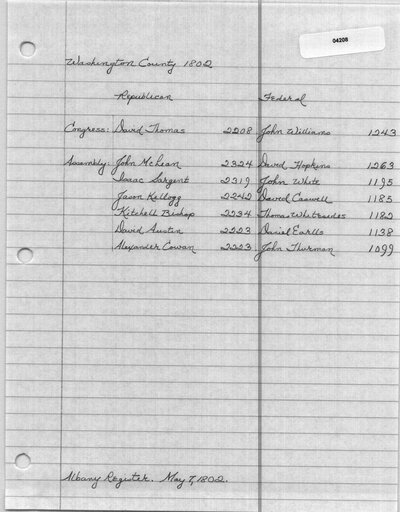 04208
Washington County 1802
Republican Federal
Congress: David Thomas 2208 John Williams 1243
Assembly: John McLean 2324 David Hopkins 1263
Isaac Sargent 2319 John White 1195
Jason Kellogg 2242 David Caswell 1185
Kitchell Bishop 2234 Thomas Whitesides 1182
David Austin 2223 Daniel Earlls 1138
Alexander Cowan 2223 John Thurman 1099
Albany Register. May 7, 1802.